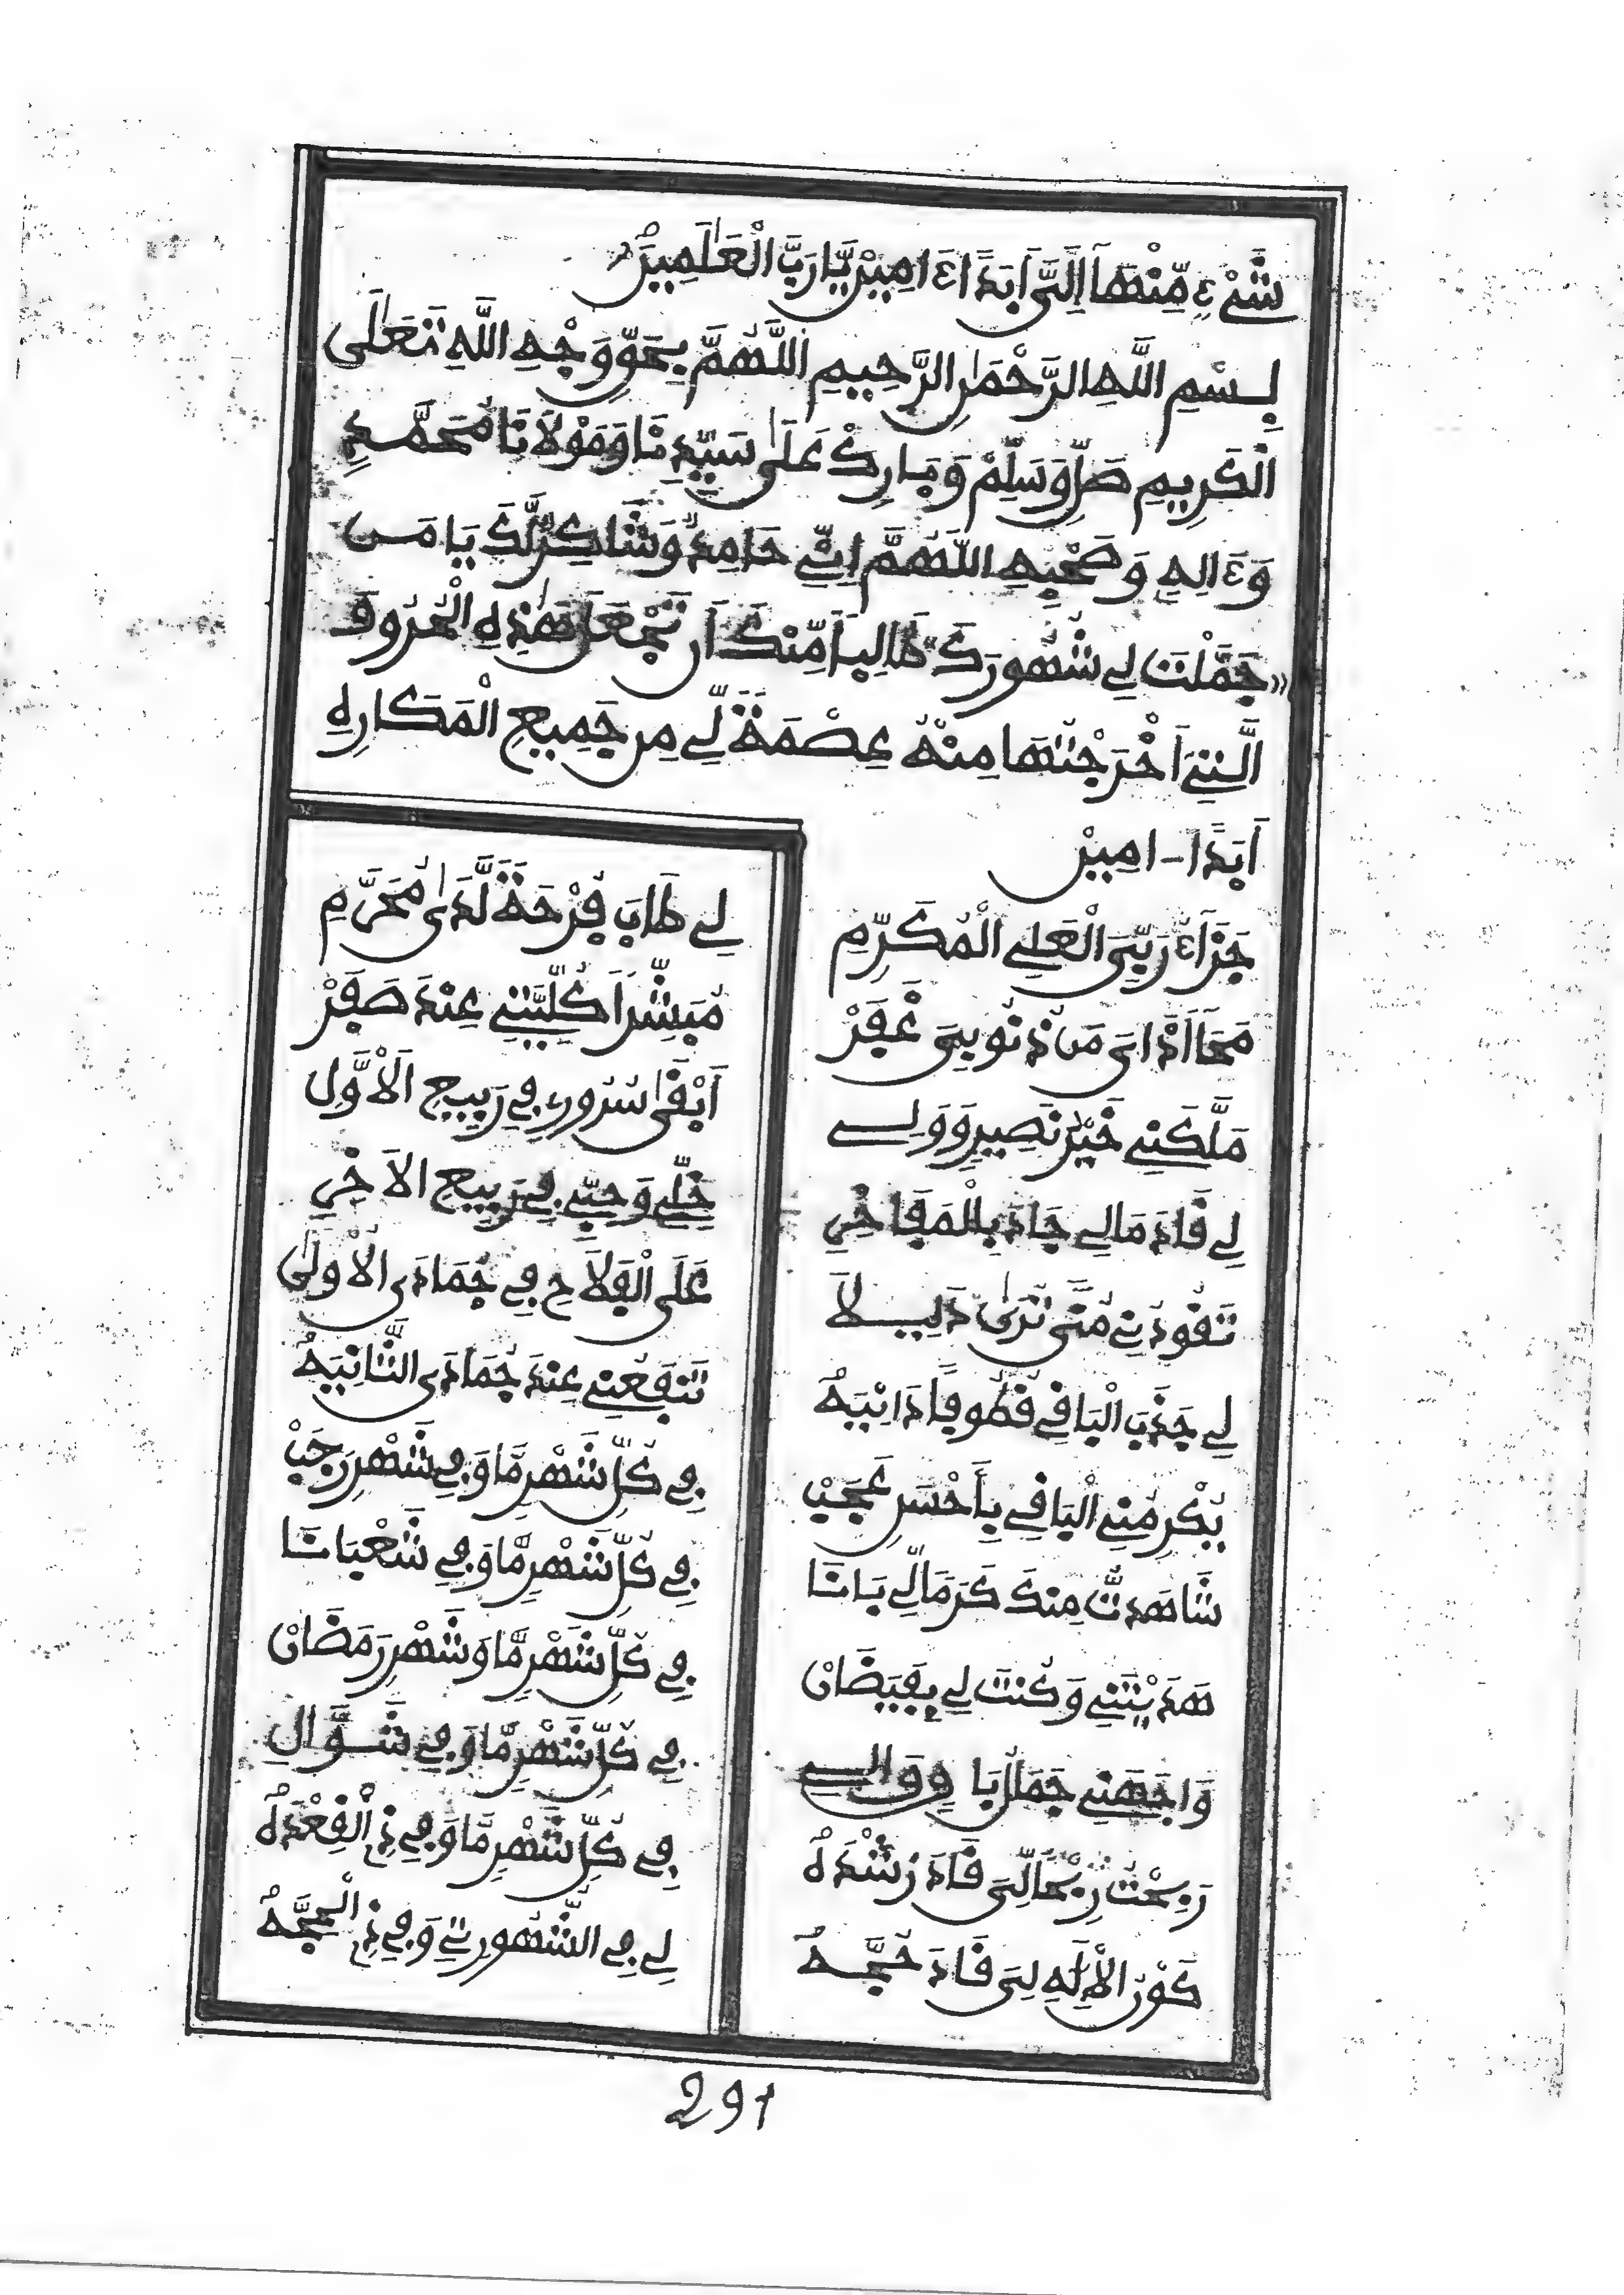 شَےْءٍ مِّنْهَآ إِلَىَّ أَبَدًا ءَامِينْ يَا رَبَّ الْعَٰلَمِينَ
بِسْمِ اللَّهِ الرَّحْمَٰنِ الرَّحِيمِ اللَّهُمَّ بِحَقِّ وَجْهِ اللَّهِ تَعَالَى
الْكَرِيمِ صَلِّ وَسَلِّمْ وَبَارِكْ عَلَىٰ سَيِّدِنَا وَمَوْلَانَا مُحَمَّدٍ
وَءَالِهِ وَصَحْبِهِ اللَّهُمَّ إِنِّے حَامِدٌ وَشَاكِرٌ لَّكَ يَا مَن
«جَمَّلْتَ لِے شُهُورَكَ» طَالِباً مِّنْكَ أَن تَجْعَلَ هَٰذِهِ الْحُرُوفَ
الَّتِے أَخْرَجْتُهَا مِنْهُ عِصْمَةً لِّے مِن جَمِيعِ الْمَكَارِهِ
أَبَدًا - امِينْ
جَزَآءُ رَبِّىَ الْعَلِے الْمُكَرِّمِ
لِے طَابَ فِرْحَةً لَّدَىٰ مُحَرَّمِ
مَحَآ أَذَاىَ مَن ذُنُوبِىَ غَفَرْ
مُبَشِّراً كُلِّيَّتِے عِنْدَ صَفَرْ
مَلَّكَنِے خَيْرُ نَصِيرٍ وَوَلِے
أَبْقَىٰ سُرُورِے فِے رَبِيعِ الْأَوَّلِ
لِے قَادَ مَالِے جَادَ بِالْمَفَاخِرِ
خِلِّے وَحِبِّے فِے رَبِيعِ الْآخِرِ
تَقُودُنِے مُنًى تُرَىٰ دَلِيلَا
عَلَى الْفَلَاحِ فِے جُمَادَى الْأُولَىٰ
لِے جَذَبَ الْبَاقِے قُطُوفًا دَانِيَهْ
تَنْفَعُنِے عِنْدَ جُمَادَى الثَّانِيَهْ
يُكْرِمُنِے الْبَاقِے بِأَحْسَنِ عَجَبْ
فِے كُلِّ شَهْرٍ مَّا وَفِے شَهْرِ رَجَبْ
شَاهَدتُّ مِنكَ كَرَمًا لِّے بَانَا
فِے كُلِّ شَهْرٍ مَّا وَفِے شَعْبَانَا
هَدَيْتَنِے وَكُنتَ لِے بِفَيَضَانْ
فِے كُلِّ شَهْرٍ مَّا وَشَهْرِ رَمَضَانْ
وَاجَهَنِے جَمَالُ بَاقٍ وَالِے
فِے كُلِّ شَهْرٍ مَّا وَفِے شَوَّالِ
رَبِحْتُ رِبْحًا لِّىَ قَادَ رُشْدَهُ
فِے كُلِّ شَهْرٍ مَّا وَفِے ذِے الْقِعْدَهُ
كَوْنُ الْإِلَٰهِ لِىَ قَادَ حَجَّهُ
لِے فِے الشُّهُورِ وَفِے ذِے الْحِجَّهْ
291